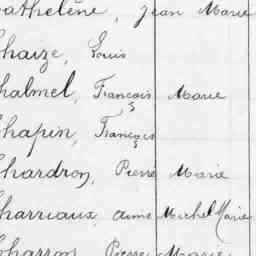 athelène, Jean Marie
Chaize, Louis
Chalmel, François Marie
Chapin, François
Chardron, Pierre Marie
Charriaux, aimé Michel Marie
Charron, Pierre Marie